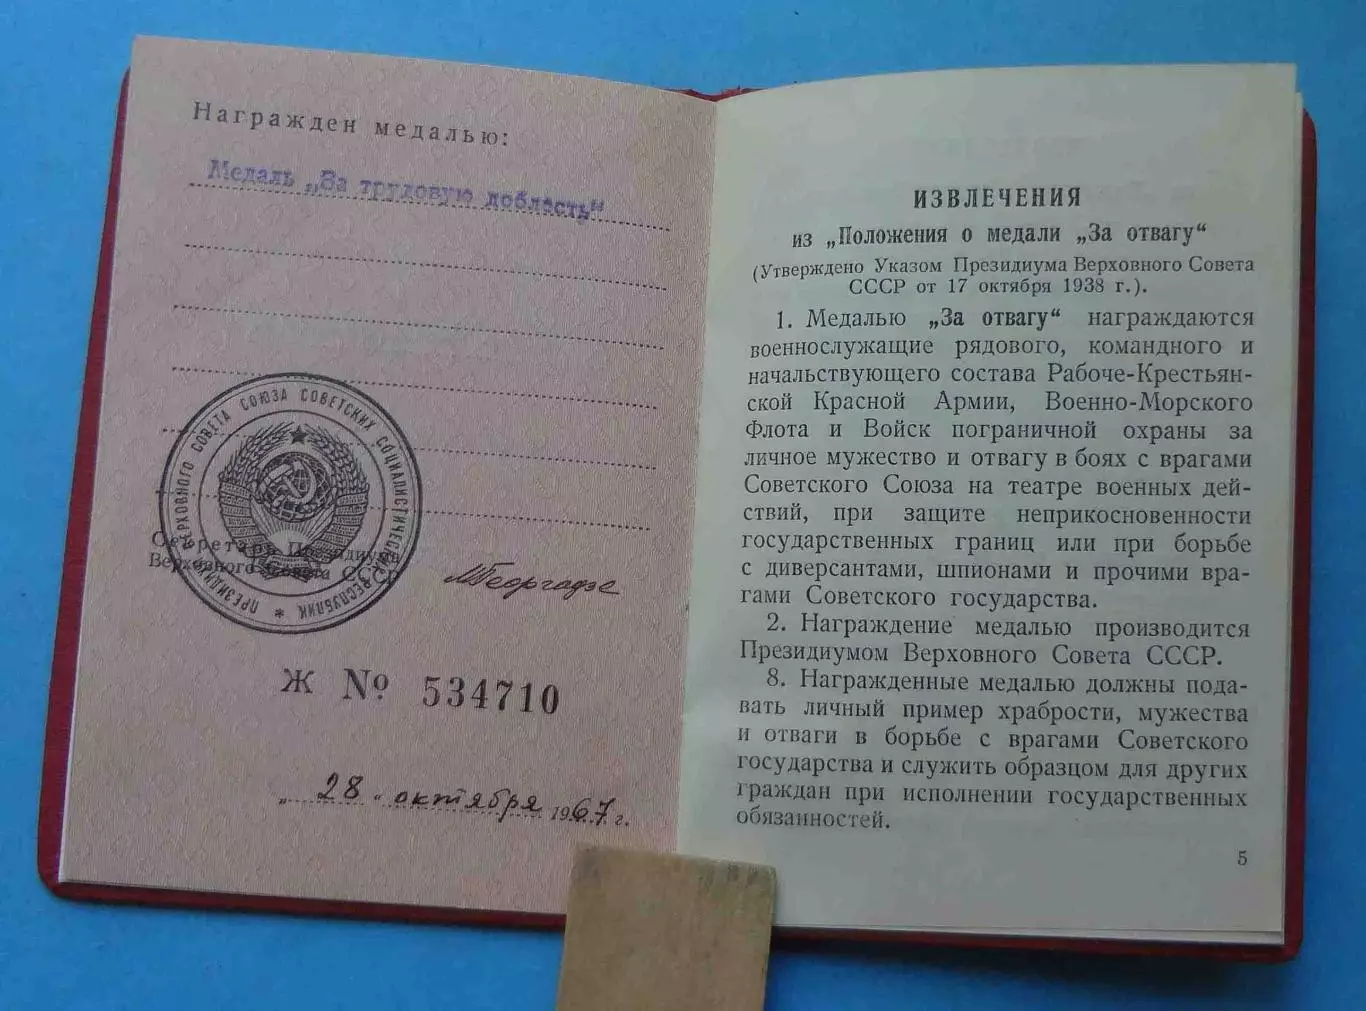 Награжден медалью:
Медаль „За трудовую доблесть“
ПРЕЗИДИУМ ВЕРХОВНОГО СОВЕТА СОЮЗА СОВЕТСКИХ СОЦИАЛИСТИЧЕСКИХ РЕСПУБЛИК *
Секретарь Президиума
Верховного Совета СССР
МГеоргадзе
Ж № 534710
„ 28 “ октября 1967 г.
ИЗВЛЕЧЕНИЯ
из „Положения о медали „За отвагу“
(Утверждено Указом Президиума Верховного Совета
СССР от 17 октября 1938 г.).
1. Медалью „За отвагу“ награждаются
военнослужащие рядового, командного и
начальствующего состава Рабоче-Крестьян-
ской Красной Армии, Военно-Морского
Флота и Войск пограничной охраны за
личное мужество и отвагу в боях с врагами
Советского Союза на театре военных дей-
ствий, при защите неприкосновенности
государственных границ или при борьбе
с диверсантами, шпионами и прочими вра-
гами Советского государства.
2. Награждение медалью производится
Президиумом Верховного Совета СССР.
8. Награжденные медалью должны пода-
вать личный пример храбрости, мужества
и отваги в борьбе с врагами Советского
государства и служить образцом для других
граждан при исполнении государственных
обязанностей.
5